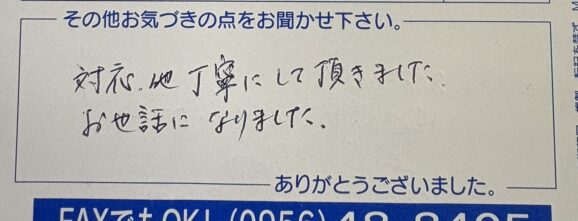 その他お気づきの点をお聞かせ下さい。
対応、他丁寧にして頂きました
お世話になりました。
ありがとうございました。
FAXでもOK! (0956)